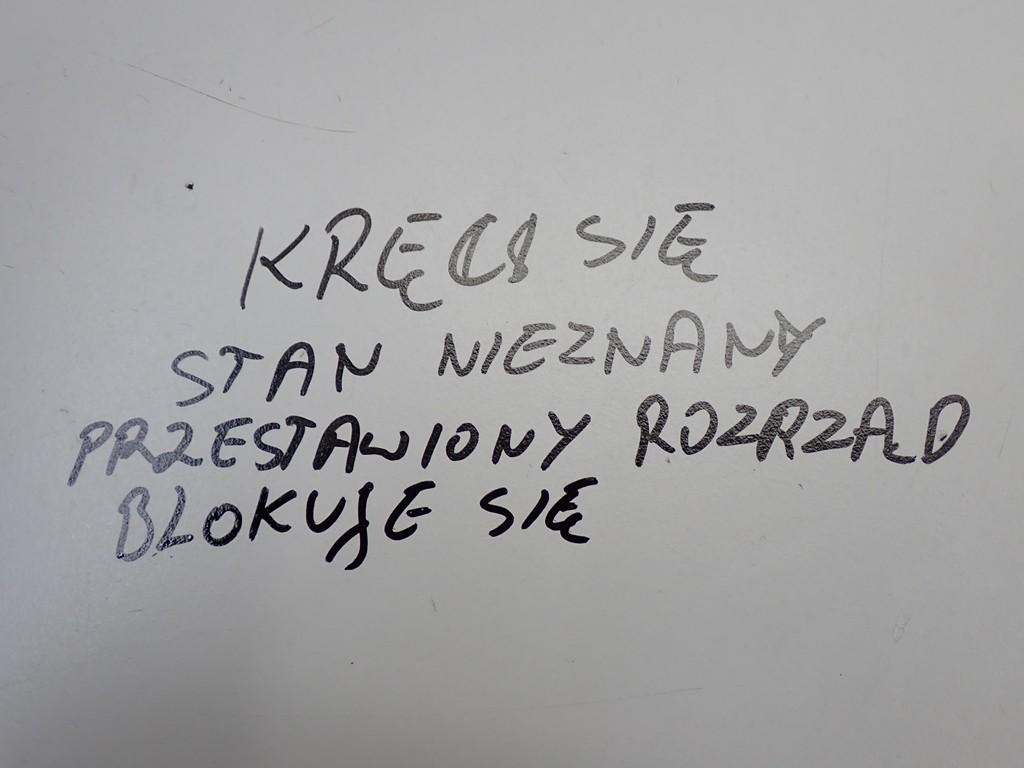 KRĘCI SIĘ
STAN NIEZNANY
PRZESTAWIONY ROZRZĄD
BLOKUJE SIĘ